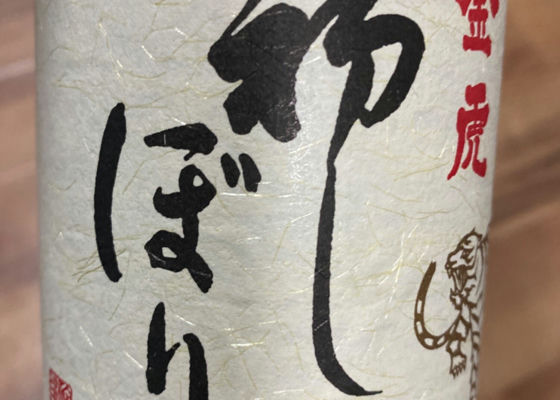 金虎
初し
ぼり